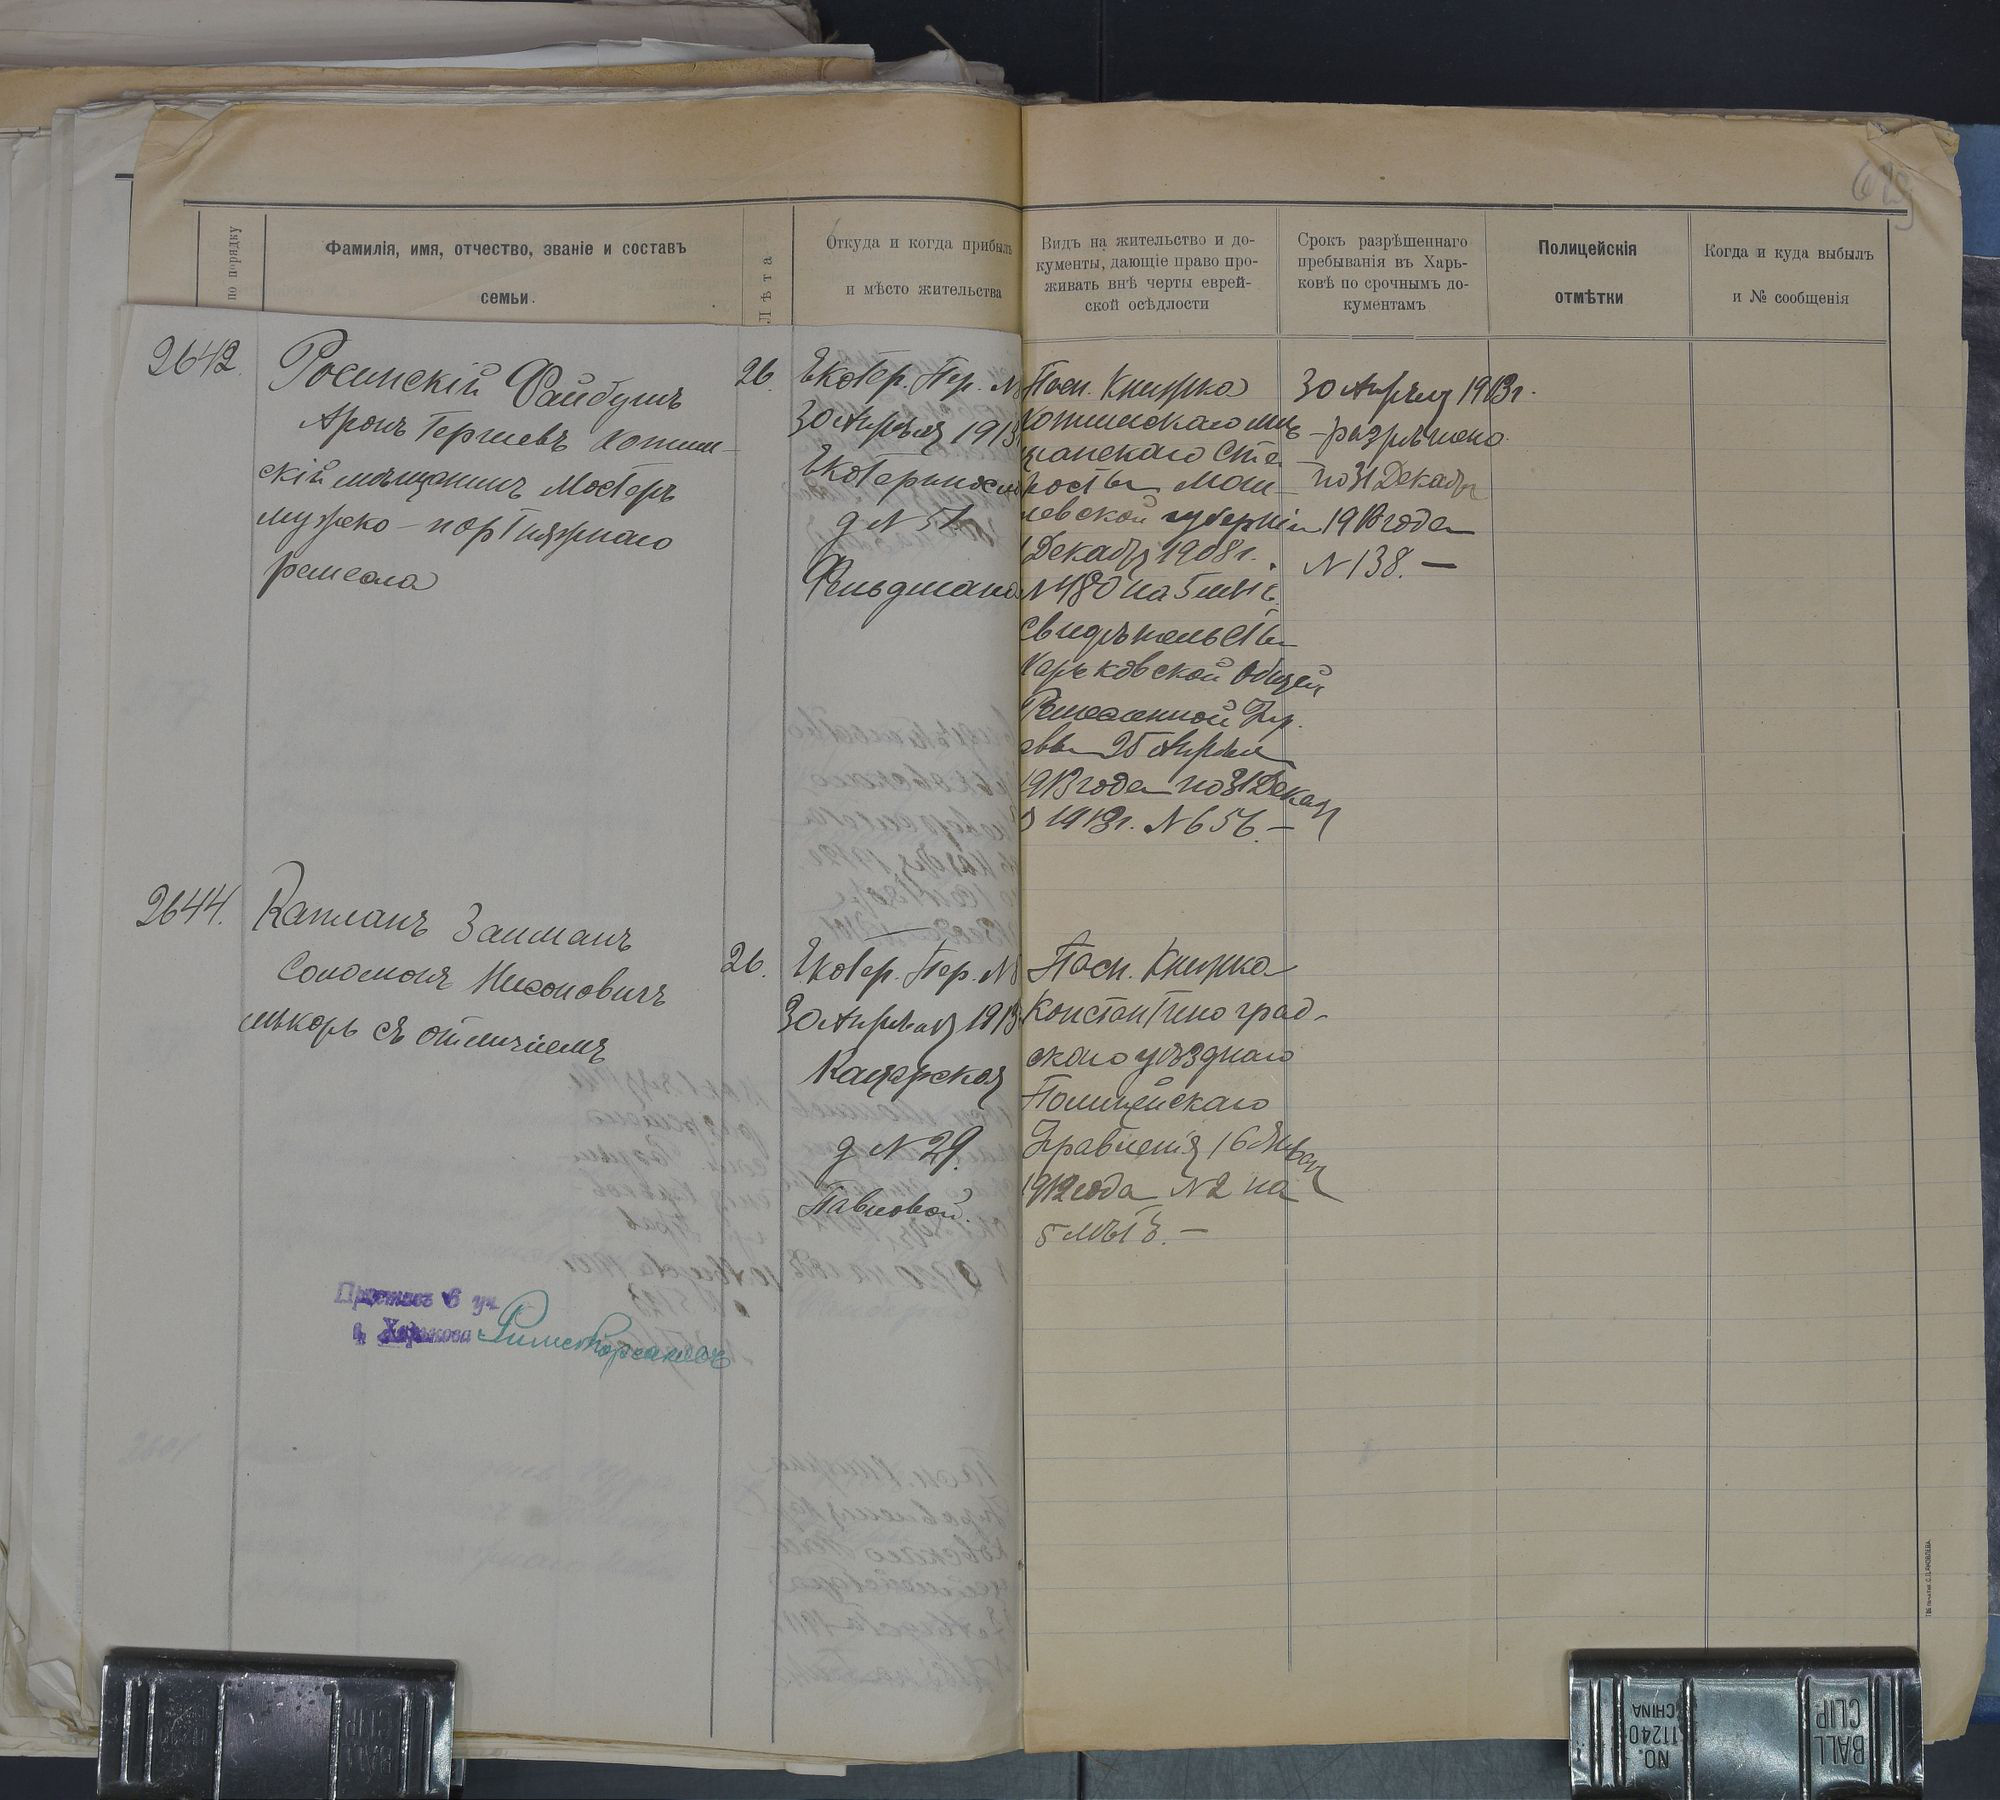 по порядку
Фамилія, имя, отчество, званіе и составъ
семьи.
Лѣта
Откуда и когда прибылъ
и мѣсто жительства
Видъ на жительство и до-
кументы, дающіе право про-
живать внѣ черты еврей-
ской осѣдлости
Срокъ разрѣшеннаго
пребыванія въ Харь-
ковѣ по срочнымъ до-
кументамъ
Полицейскія
отмѣтки
Когда и куда выбылъ
и № сообщенія
2642.
Росинскій Файбушъ
Аронъ Гершевъ
скій мѣщанинъ Мастеръ
мужеко-портняжнаго
ремесла
26.
Екатер. Пер. №
30 Апрѣля 1913
Екатеринослав
д № 51
Фельдмана
Пасп. Книжка
щанскаго Ста
росты Моги
левской губерніи
Декабр 1908 г.
№ 480 на 5 лѣтъ
Свидѣтельства
Харьковской Общей
Ремесленной Упр.
авы 25 Апрѣля
1913 года по 31 Декаб
1913 г. № 656.—
30 Апрѣля 1913 г.
разрѣшено
по 31 Декабр
1913 года
№ 138.—
2644.
Капланъ Залманъ
Соломонъ
лѣкарь съ отличіемъ
26.
Екатер. Пер. №
30 Апрѣля 1913
Кацарская
д № 29.
Павловой.
Пасп. Книжка
Константиноград-
скаго уѣзднаго
Полицейскаго
Управленія 16 Январ
1912 года № 2 на
5 лѣтъ.—
Приставъ 6 уч.
г. Харькова
BALL
CLIP
NO.
11240
CHINA